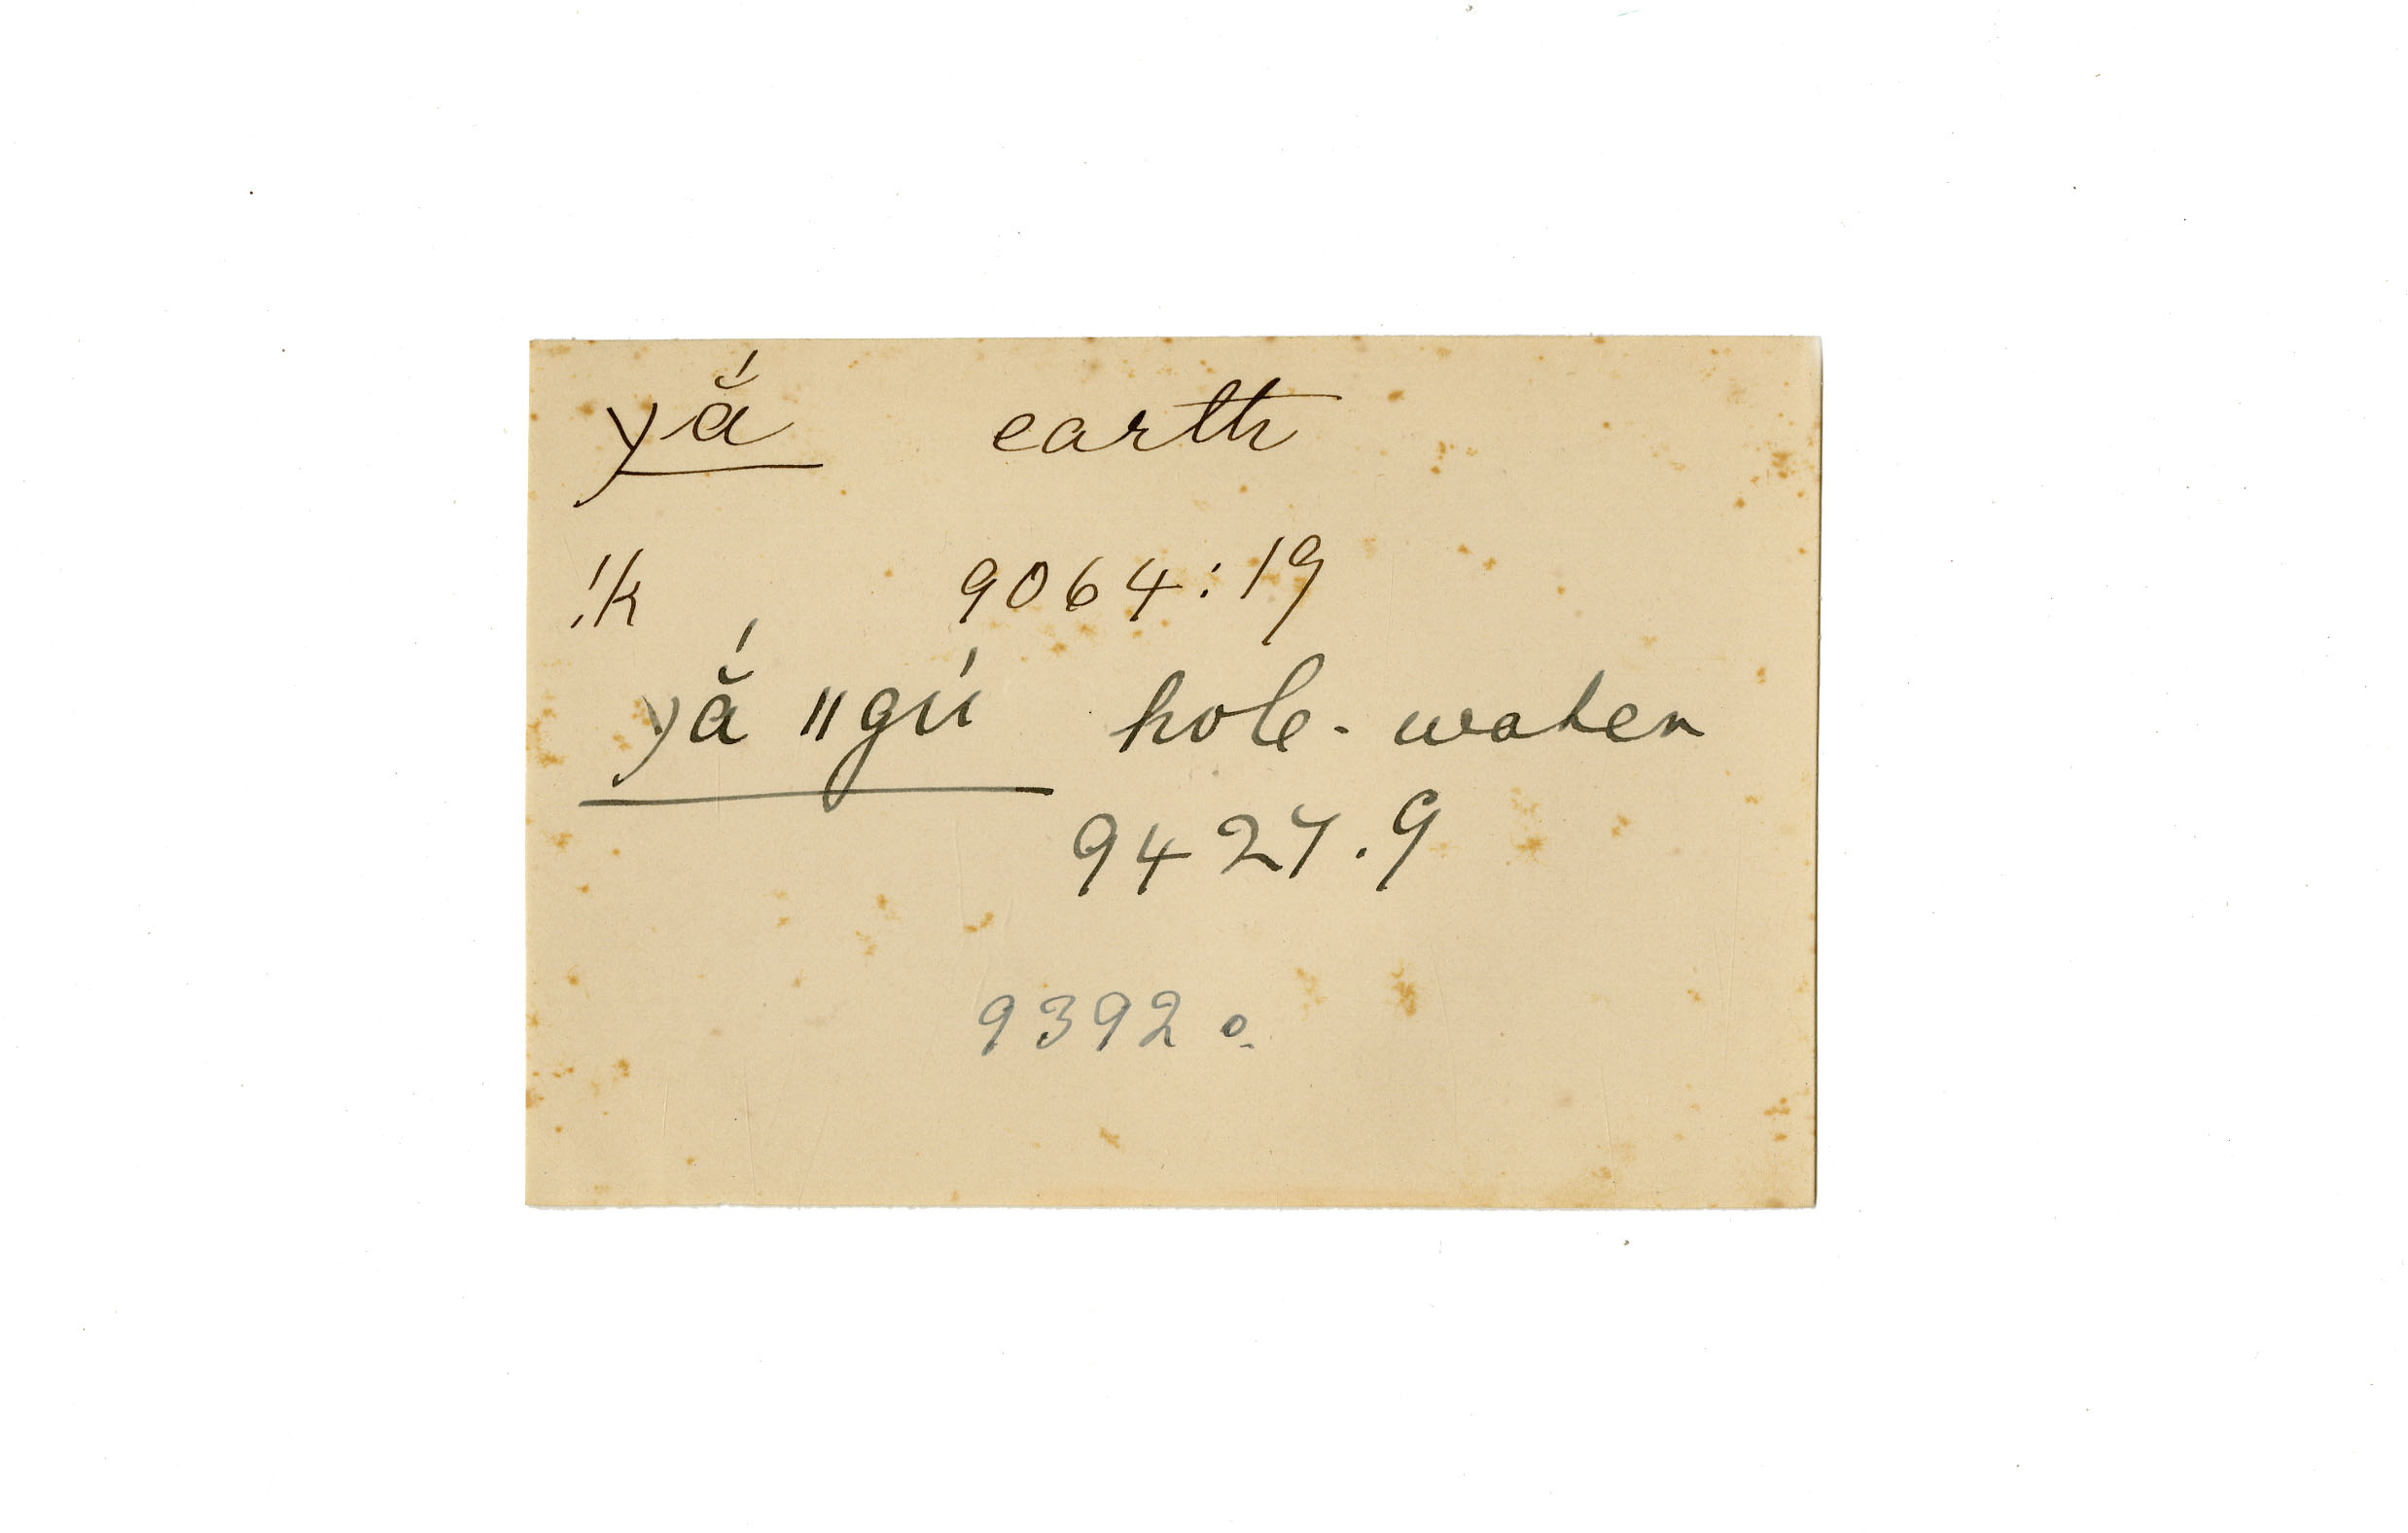 yắ earth
!k 9064:19
yắ ǁgú hole-water
9427.9
9392 o.